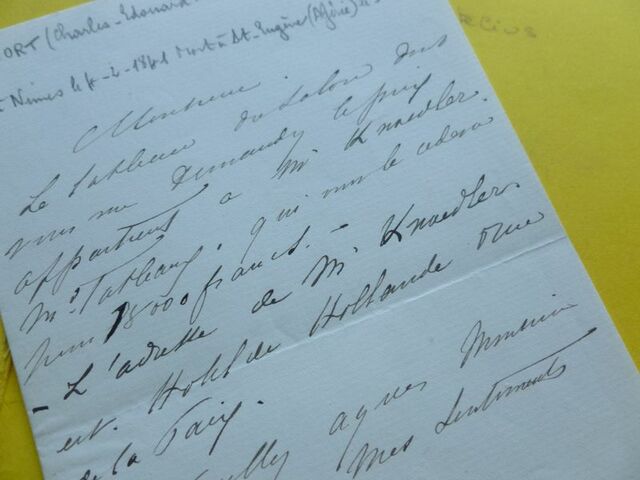 ORT (Charles-Edouard
Nîmes le 4-2-1841 Mort à St-Eugène (Algérie)
Monsieur.
Le tableau du Salon dont
vous me demandez le prix
appartient à Mr Knoedler.
Md Tableaux, qui me le cédera
pour 18000 francs. -
- L'adresse de Mr Knoedler
est. Hotel de Hollande rue
de la Paix.
agréer Monsieur
mes sentiments